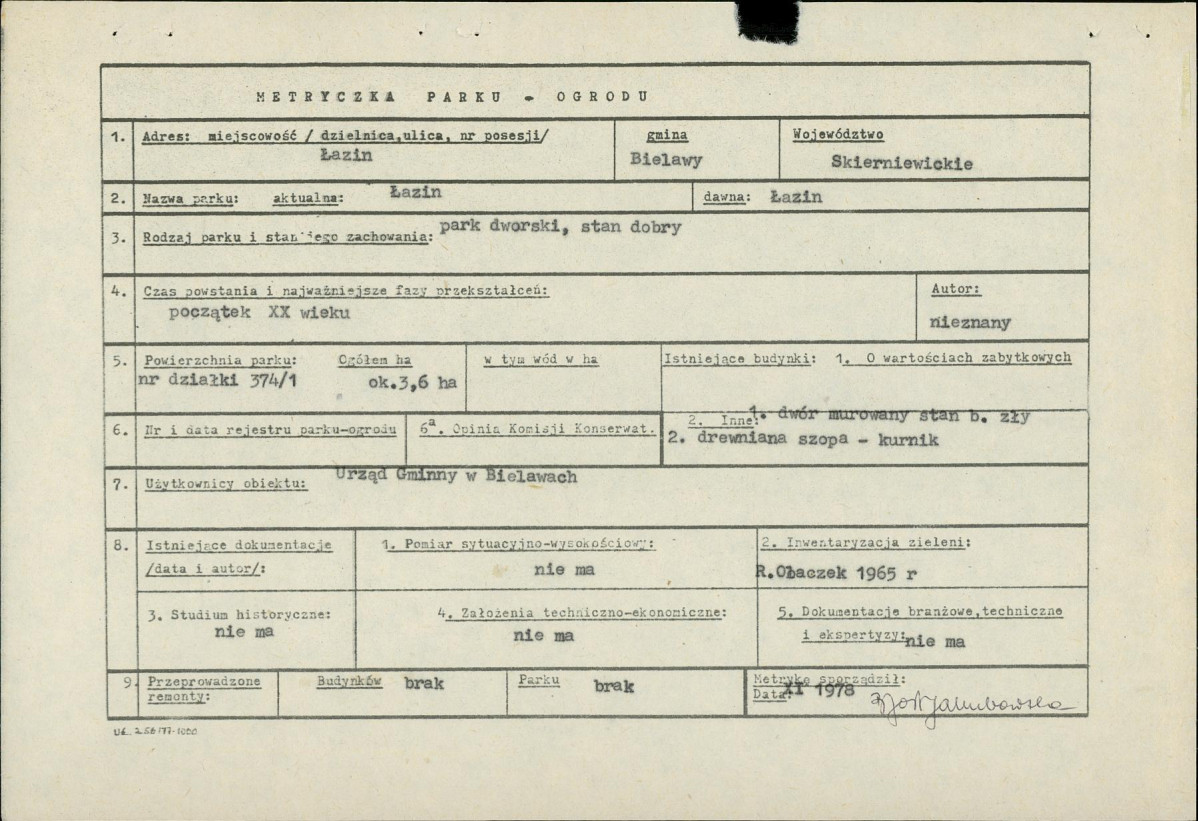 METRYCZKA PARKU - OGRODU
1. Adres: miejscowość / dzielnica,ulica, nr posesji/
Łazin
gmina
Bielawy
Województwo
Skierniewickie
2. Nazwa parku: aktualna: Łazin
dawna: Łazin
3. Rodzaj parku i stan jego zachowania: park dworski, stan dobry
4. Czas powstania i najważniejsze fazy przekształceń:
początek XX wieku
Autor:
nieznany
5. Powierzchnia parku: Ogółem ha
nr działki 374/1 ok.3,6 ha
w tym wód w ha
Istniejące budynki: 1. O wartościach zabytkowych
2. Inne: 1. dwór murowany stan b. zły
2. drewniana szopa - kurnik
6. Nr i data rejestru parku-ogrodu
6a. Opinia Komisji Konserwat.
7. Użytkownicy obiektu: Urząd Gminny w Bielawach
8. Istniejące dokumentacje
/data i autor/:
1. Pomiar sytuacyjno-wysokościowy:
nie ma
2. Inwentaryzacja zieleni:
R.Olaczek 1965 r
3. Studium historyczne:
nie ma
4. Założenia techniczno-ekonomiczne:
nie ma
5. Dokumentacje branżowe,techniczne
i ekspertyzy: nie ma
9. Przeprowadzone
remonty:
Budynków brak
Parku brak
Metrykę sporządził:
Data: XI 1978